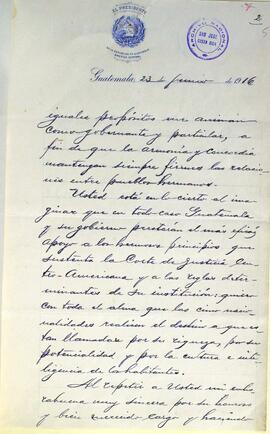 EL PRESIDENTE
DE LA REPUBLICA DE GUATEMALA
AMERICA CENTRAL
ARCHIVO NACIONAL
SAN JOSE
COSTA RICA
2
Guatemala, 23 de Junio de 1916
iguales propósitos me animan
como gobernante y particular, a
fin de que la armonía y concordia
mantengan siempre firmes las relacio
nes entre pueblos hermanos.
Usted está en lo cierto al ima
ginar que en todo caso Guatemala
y su gobierno prestarán el más eficaz
apoyo a los hermosos principios que
sustenta la Corte de Justicia Cen
tro-Americana y a las reglas deter
minantes de su institución; quiero
con toda el alma que las cinco nacio
nalidades realicen el destino a que es
tan llamadas por su riqueza, por su
potencialidad y por la cultura e inte
ligencia de los habitantes.
Al repetir a Usted mi enho
rabuena muy sincera por su honroso
y bien merecido cargo y haciendo